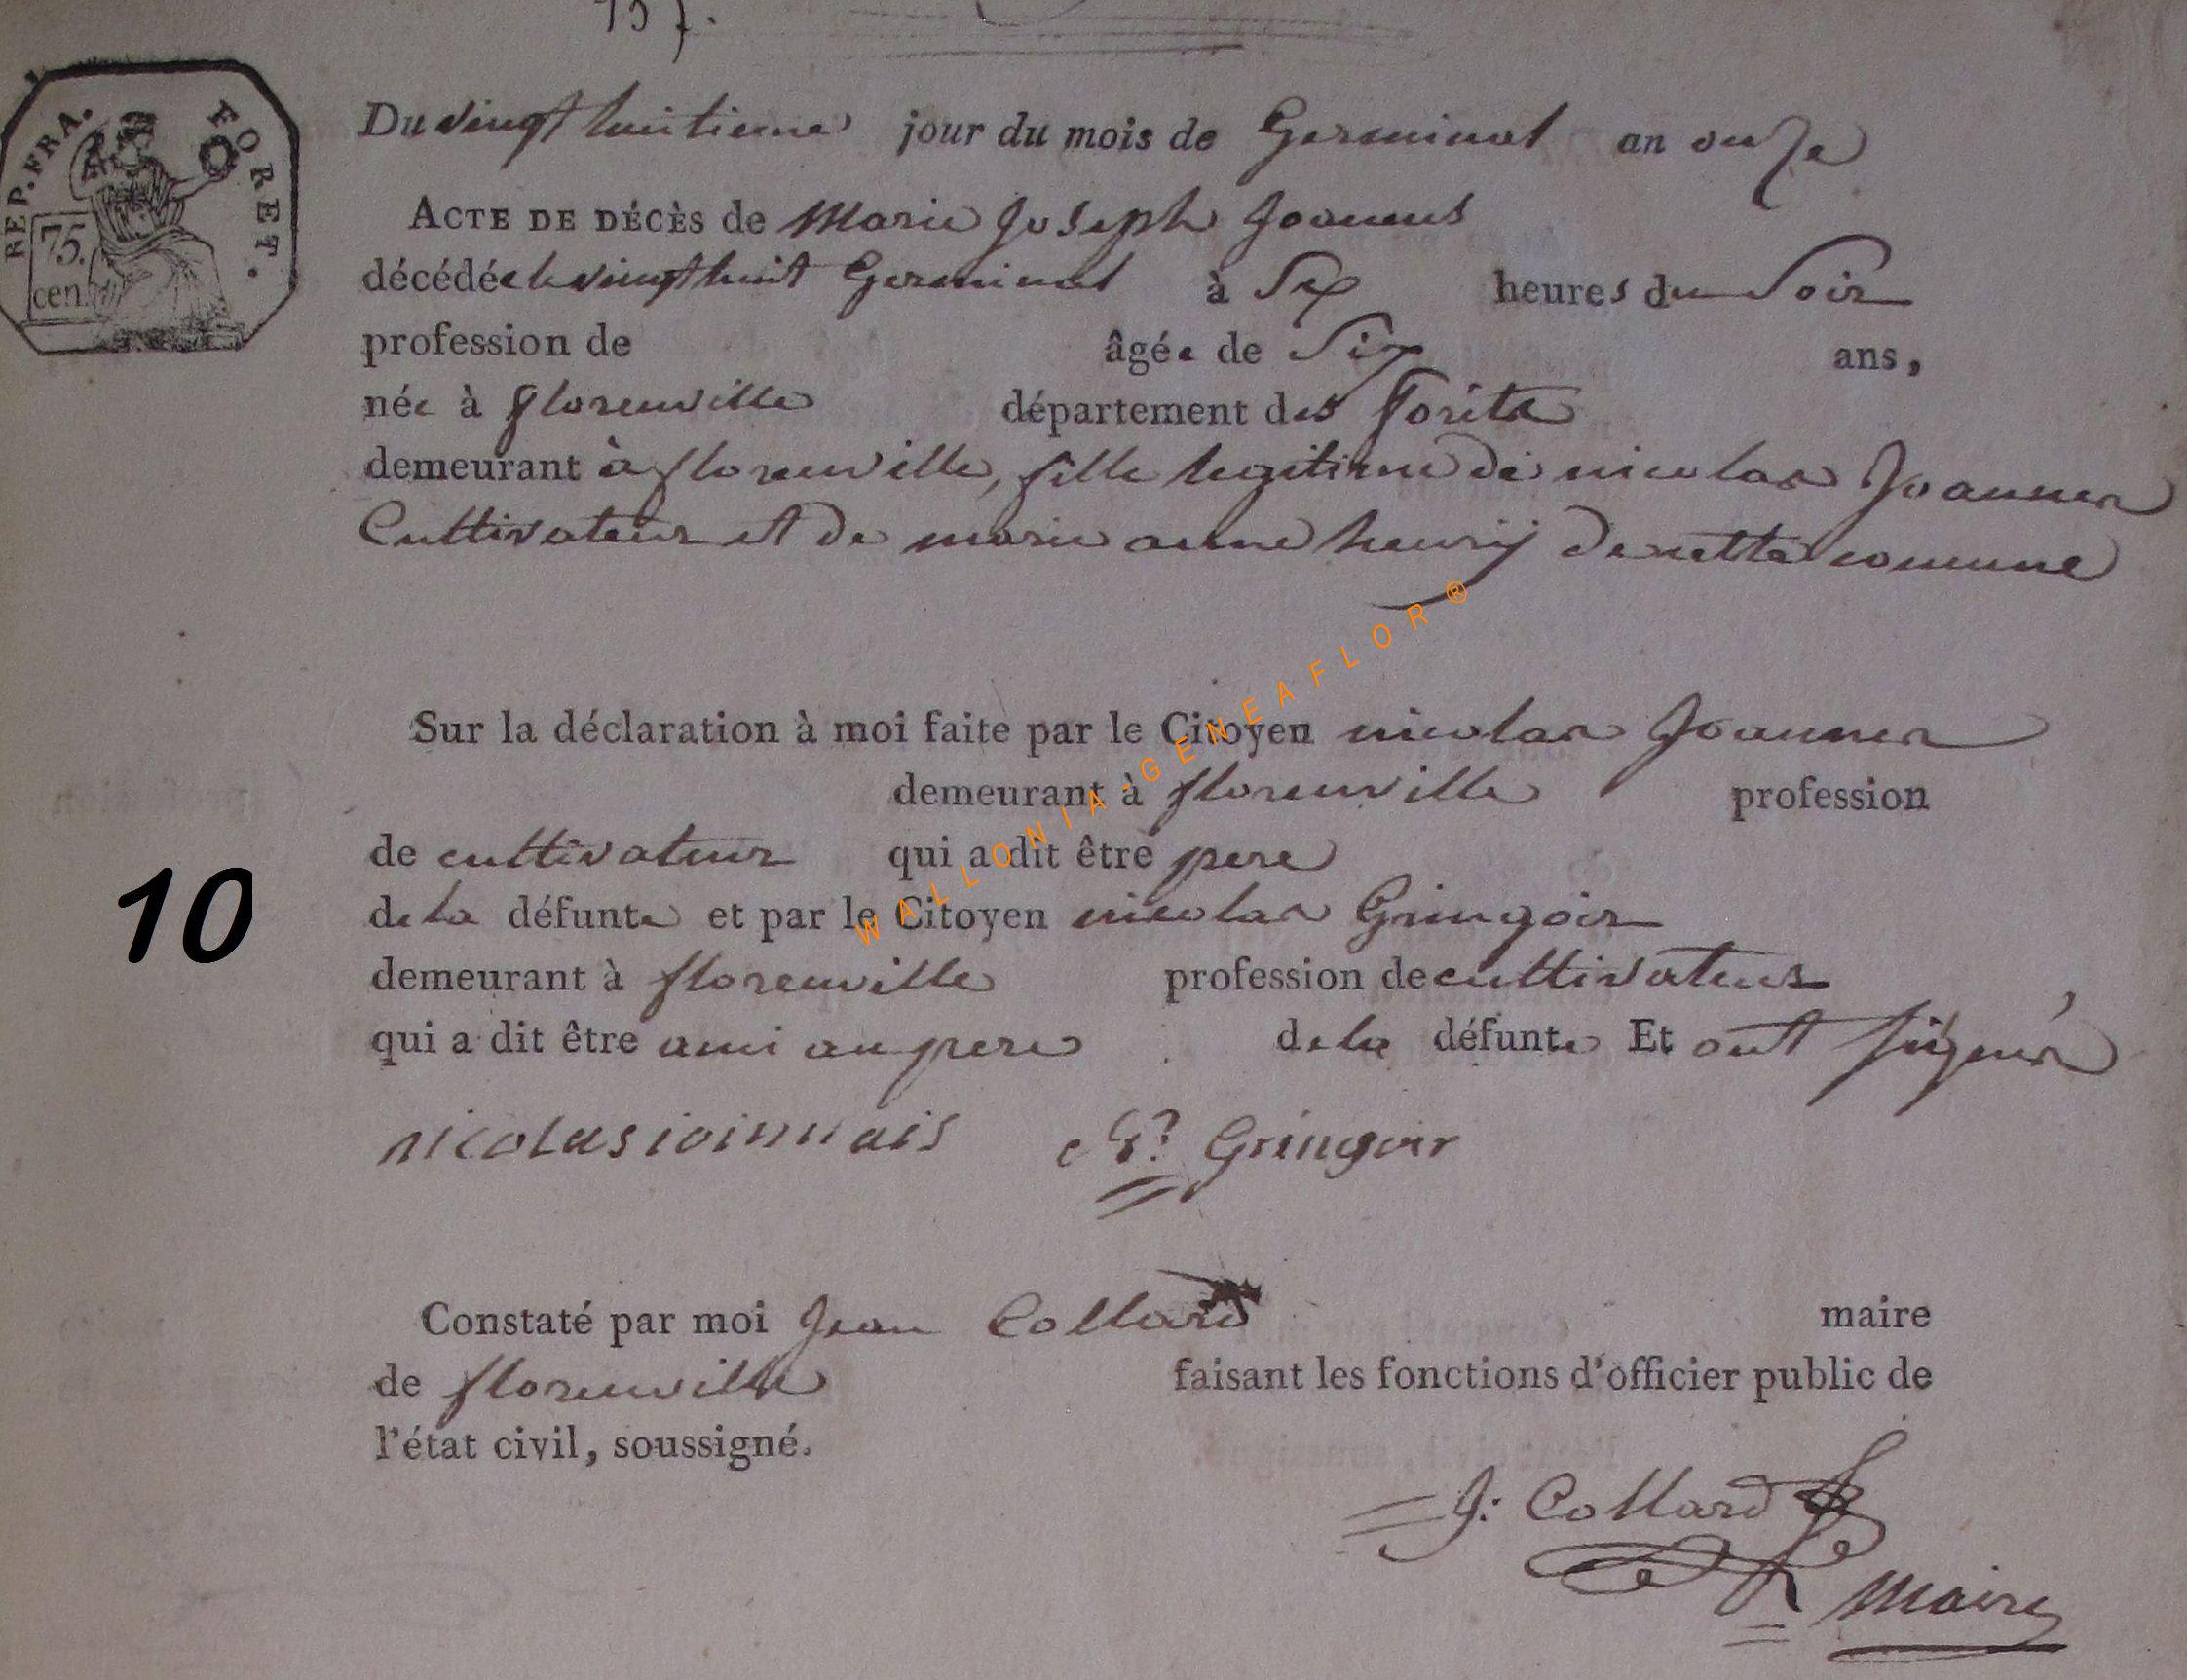 137.
REP. FRA. FORET.
75.
cen.
Du vingt huitieme jour du mois de Germinal an onze
ACTE DE DÉCÈS de Marie Joseph Joannes
décédée le vingt huit Germinal à Six heures du Soir
profession de âgée de Six ans,
née à florenville département des Forêts
demeurant à florenville, fille legitime de nicolas Joannes
Cultivateur et de marie anne henrÿ de cette comune
Sur la déclaration à moi faite par le Citoyen nicolas Joannes
demeurant à florenville profession
de cultivateur qui a dit être pere
de la défunte et par le Citoyen nicolas Gringoir
demeurant à florenville profession de cultivateur
qui a dit être ami au pere de la défunte Et ont Signés
nicolas ioinnais Gringoir
Constaté par moi Jean Collard maire
de florenville faisant les fonctions d'officier public de
l'état civil, soussigné.
J: Collard
Maire
10
WALLONIA-GENEAFLOR®